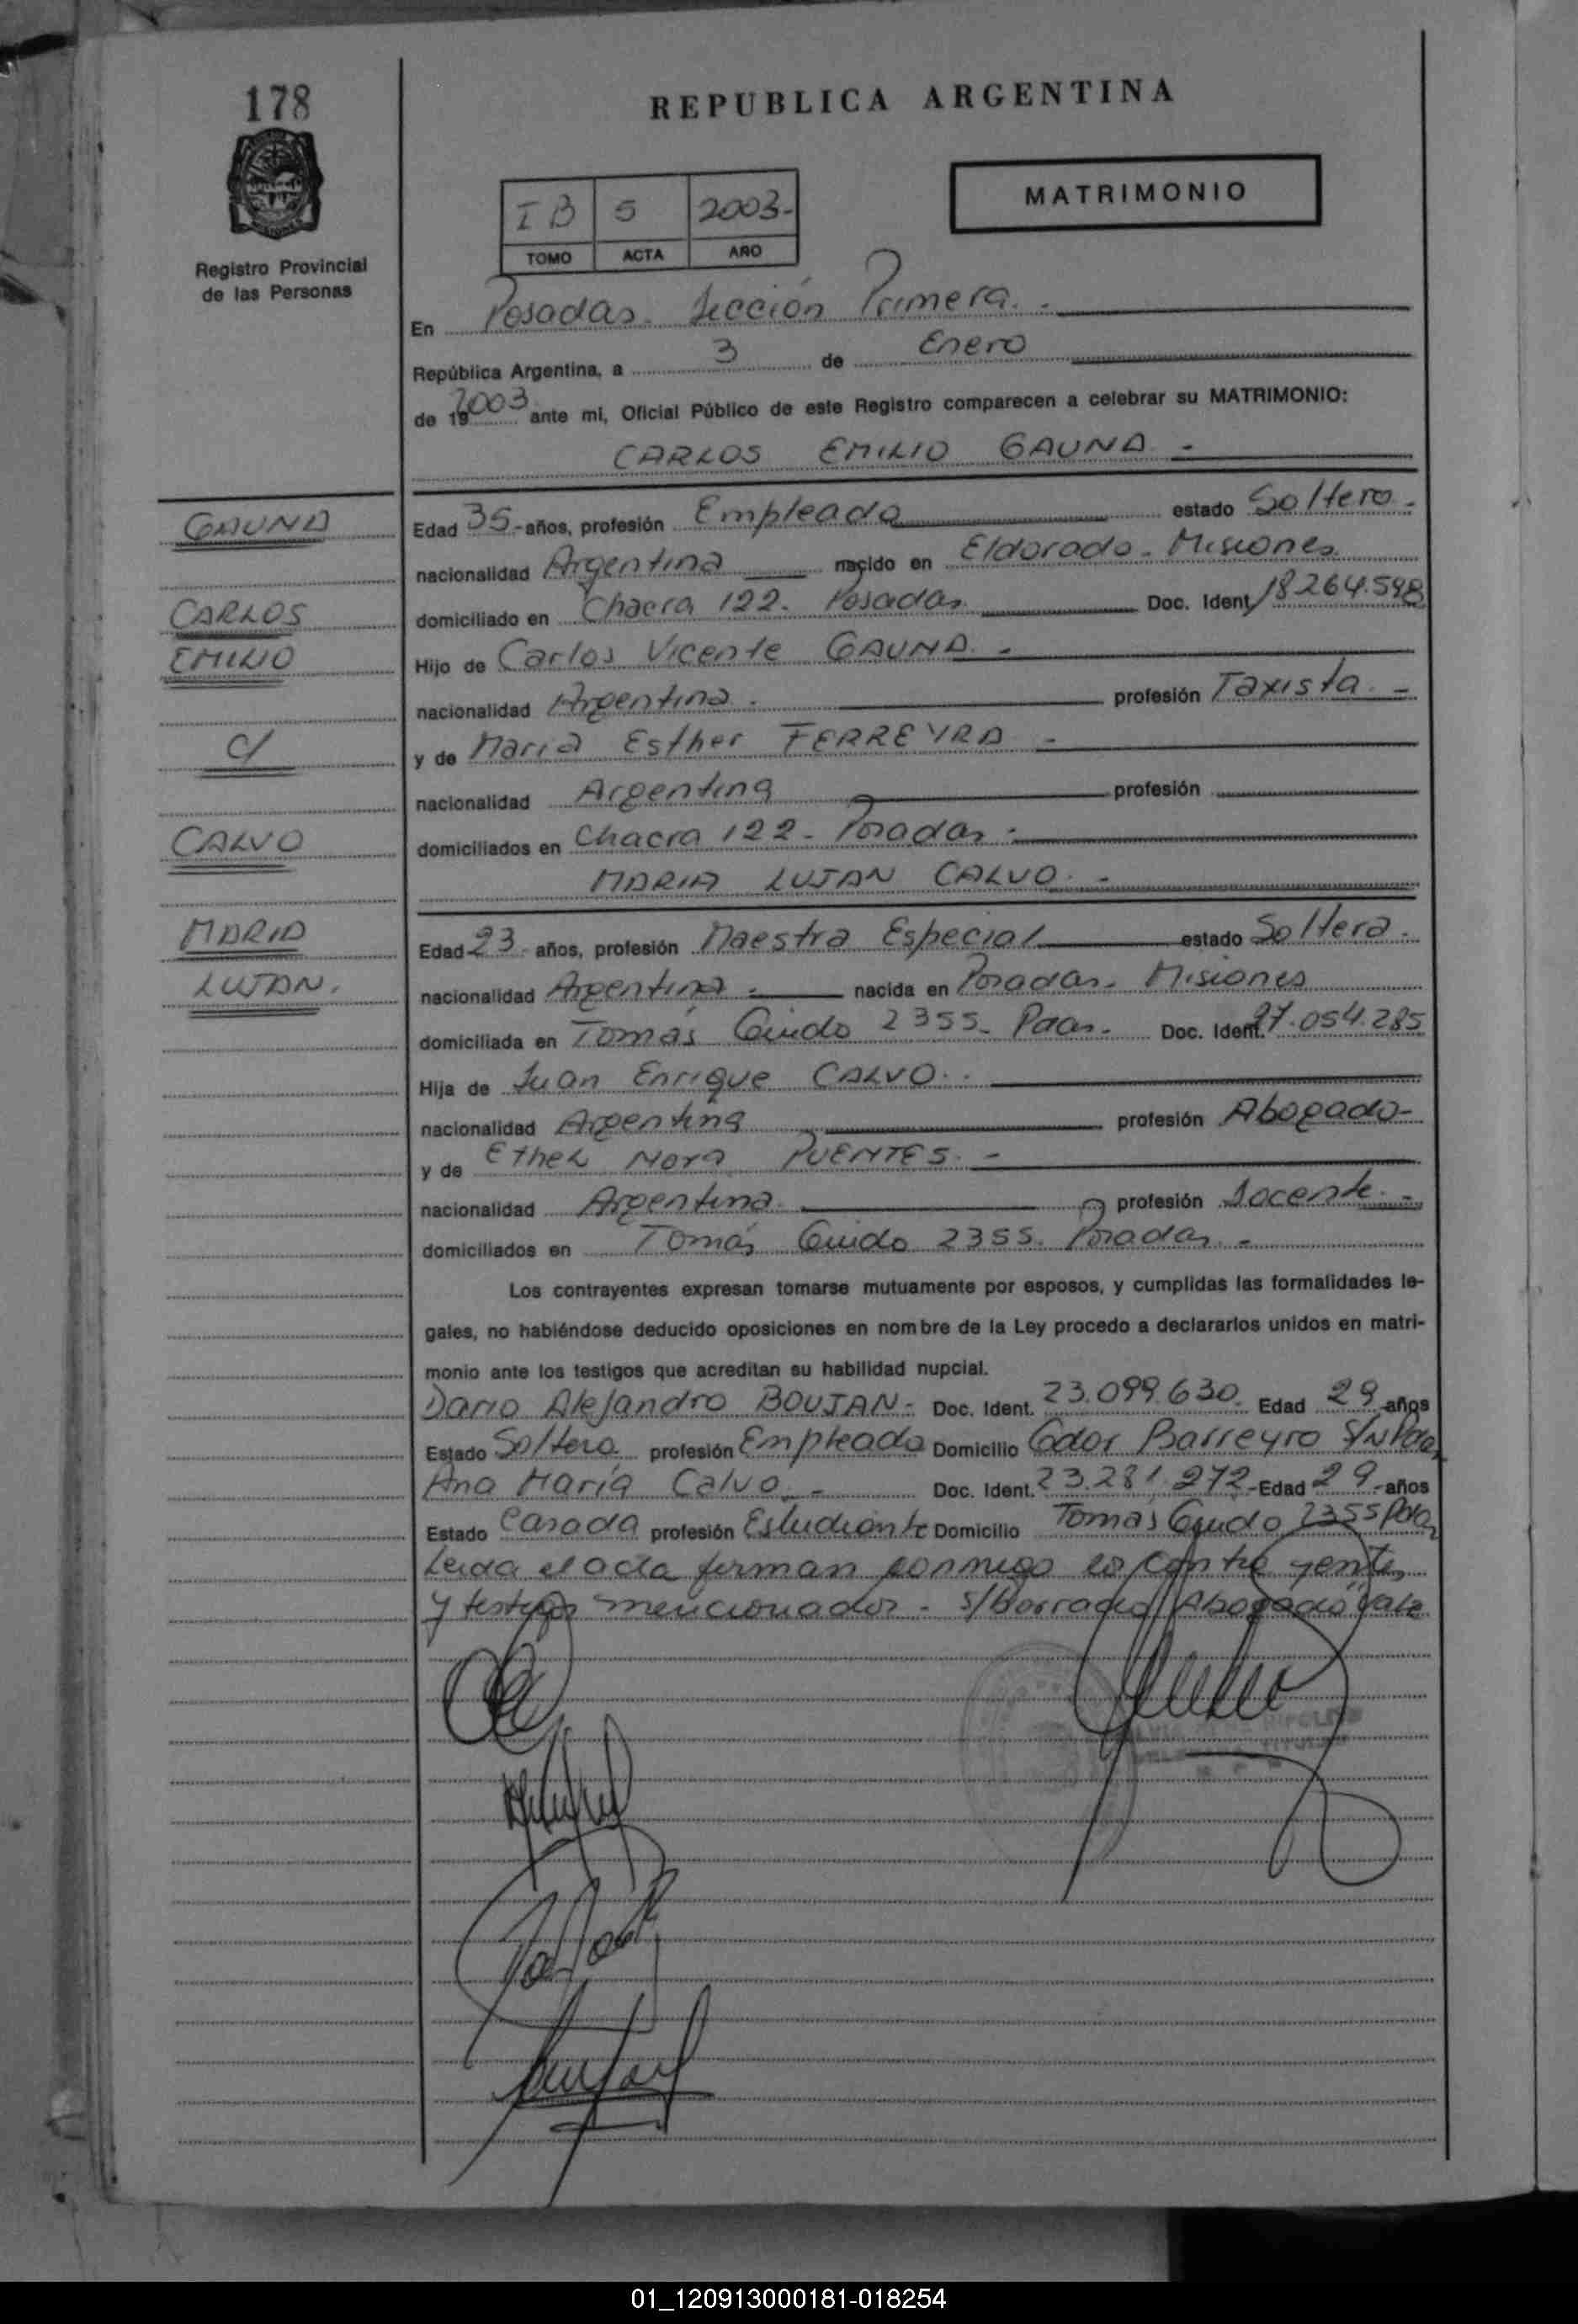 178
REPUBLICA ARGENTINA
MATRIMONIO
I B 5 2003-
TOMO ACTA AÑO
Registro Provincial
de las Personas
En Posadas. Sección Primera. -
República Argentina, a 3 de Enero
de 19 2003 ante mi, Oficial Público de este Registro comparecen a celebrar su MATRIMONIO:
CARLOS EMILIO GAUNA -
GAUNA
CARLOS
EMILIO
c/
CALVO
MARIA
LUJAN.
Edad 35 - años, profesión Empleado estado Soltero -
nacionalidad Argentina nacido en Eldorado - Misiones
domiciliado en Chacra 122. Posadas. Doc. Ident. 18.264.598
Hijo de Carlos Vicente GAUNA. -
nacionalidad Argentina. profesión Taxista. -
y de Maria Esther FERREYRA -
nacionalidad Argentina profesión
domiciliados en Chacra 122 - Posadas.
MARIA LUJAN CALVO. -
Edad 23 - años, profesión Maestra Especial estado Soltera.
nacionalidad Argentina. nacida en Posadas. Misiones
domiciliada en Tomás Guido 2355. Pdas. Doc. Ident. 27.054.285
Hija de Juan Enrique CALVO.
nacionalidad Argentina profesión Abogado-
y de Ethel Nora PUENTES. -
nacionalidad Argentina. profesión Docente. -
domiciliados en Tomás Guido 2355. Posadas. -
Los contrayentes expresan tomarse mutuamente por esposos, y cumplidas las formalidades le-
gales, no habiéndose deducido oposiciones en nombre de la Ley procedo a declararlos unidos en matri-
monio ante los testigos que acreditan su habilidad nupcial.
Dario Alejandro BOUJAN - Doc. Ident. 23.099.630. Edad 29 años
Estado Soltero profesión Empleado Domicilio Gdor Barreyro S/N Pdas
Ana María Calvo. - Doc. Ident. 23.281.272 - Edad 29 - años
Estado Casada profesión Estudiante Domicilio Tomás Guido 2355 Pdas
Leida el acta firman conmigo los contrayentes
y testigos mencionados - s/borrado "Abogado" vale
01_120913000181-018254